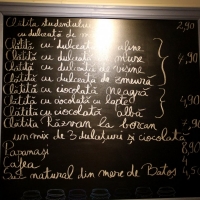 Clătită studentului 2,90
cu dulceață de
Clătită cu dulceață de afine
Clătită cu dulceață de mure 4,90
Clătită cu dulceață de vișine
Clătită cu dulceață de zmeură
Clătită cu ciocolată neagră
Clătită cu ciocolată cu lapte 4,90
Clătită cu ciocolată albă
Clătita Răzvan la borcan 7,90
un mix de 3 dulcețuri și ciocolată
Papanași 8,90
Cafea
Suc natural din mere de Batoș 4,5